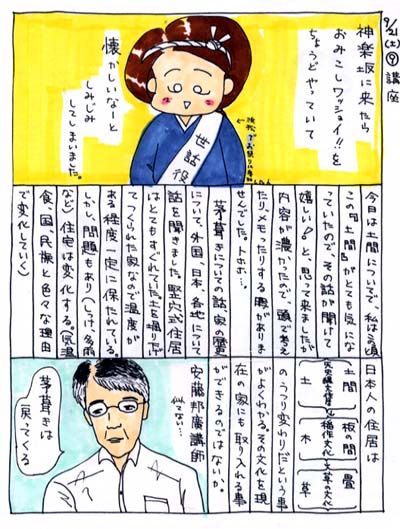 9/21(土)⑨講座
神楽坂に来たら
おみこしワッショイ!!を
ちょうどやっていて
懐かしいなーと
しみじみ
してしまいました。
世話役
今日は土間についで、私はこの頃
この『土間』がとても気にな
っていたので、その話が聞けて
嬉しい!と、思って来ましたが
内容が濃かったので、頭で考え
たり、メモったりする暇がありま
せんでした。トホホ…
茅葺きについての話、家の
について、外国、日本、各地について
話を聞きました。竪穴式住居
はとてもすぐれていた。土を掘り下げ
てつくられた家なので温度が
ある程度一定に保たれている。
しかし、問題もあり(しっけ、多雨
など)住宅は変化する。(気温
食、国、民族と色々な理由
で変化していく)
日本人の住居は
土間 板の間 畳
土 木 草
のうつり変わりだという事
がよくわかる。その文化を現
在の家にも取り入れる事
ができるのではないか。
安藤邦廣講師
似てない…
茅葺きは
戻ってくる